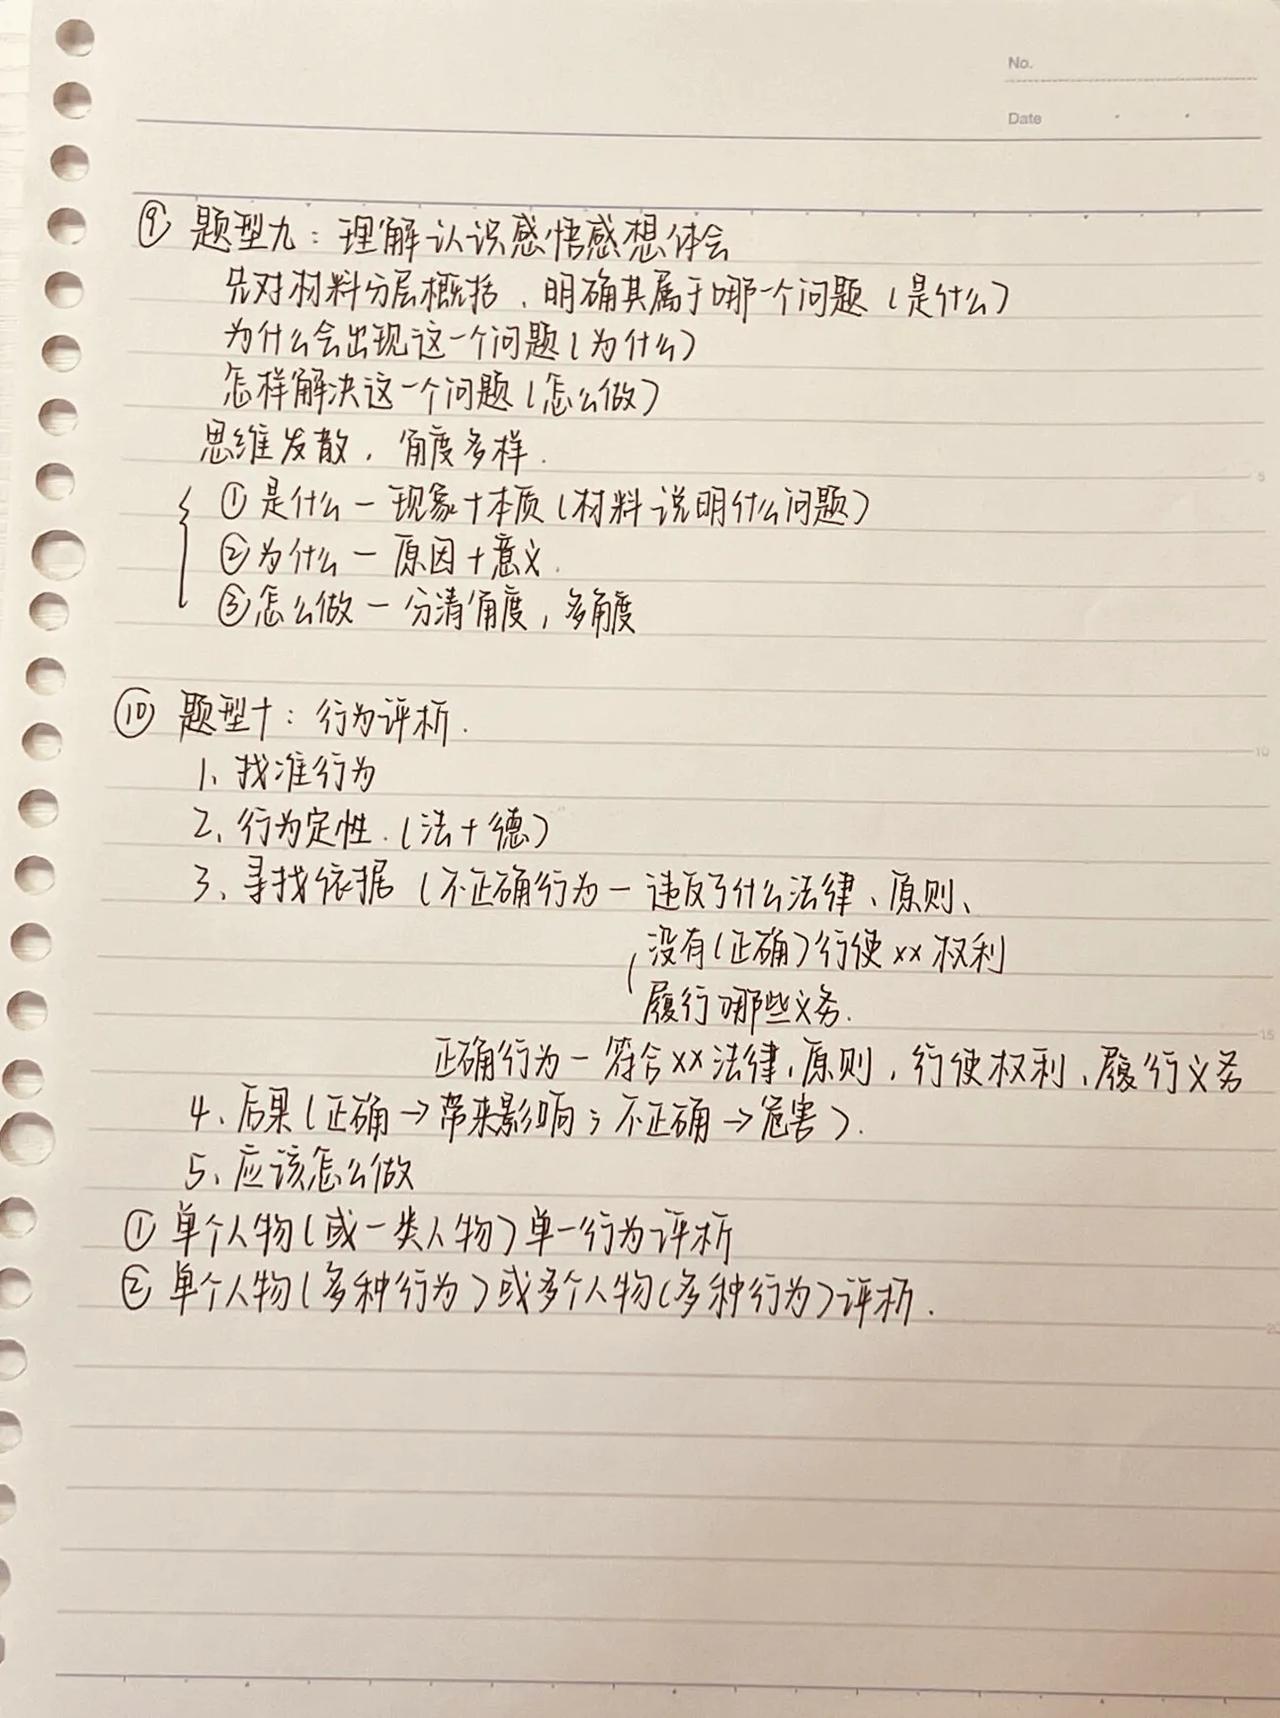 No.
Date
⑨ 题型九：理解认识感悟感想体会
先对材料分层概括，明确其属于哪一个问题（是什么）
为什么会出现这一个问题（为什么）
怎样解决这一个问题（怎么做）
思维发散，角度多样.
①是什么—现象+本质（材料说明什么问题）
②为什么—原因+意义.
③怎么做—分清角度，多角度
⑩ 题型十：行为评析.
1、找准行为
2、行为定性.（法+德）
3、寻找依据（不正确行为—违反了什么法律、原则、
没有（正确）行使××权利
履行哪些义务.
正确行为—符合××法律、原则，行使权利、履行义务
4、后果（正确→带来影响；不正确→危害）.
5、应该怎么做
① 单个人物（或一类人物）单一行为评析
② 单个人物（多种行为）或多个人物（多种行为）评析.
5
10
15
20